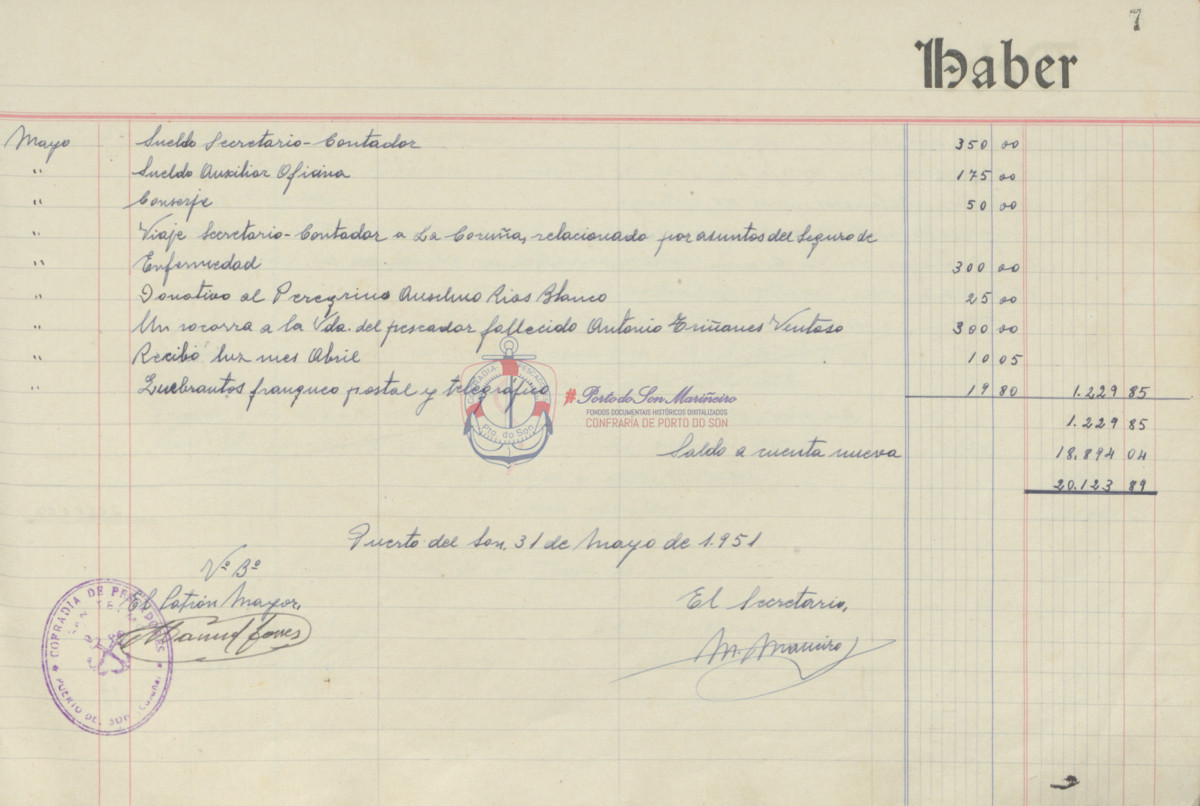 7
Haber
Mayo Sueldo Secretario-Contador 350 00
" Sueldo Auxiliar Oficina 175 00
" Conserje 50 00
" Viaje Secretario-Contador a La Coruña, relacionado por asuntos del Seguro de
" Enfermedad 300 00
" Donativo al Peregrino Anselmo Rios Blanco 25 00
" Un socorro a la Vda. del pescador fallecido Antonio Triñanes Ventoso 300 00
" Recibo luz mes Abril 10 05
" Quebrantos franqueo postal y telegráfico 19 80 1.229 85
COFRADIA PESCADORES
Pto. do Son
#Porto do Son Mariñeiro
FONDOS DOCUMENTAIS HISTÓRICOS DIXITALIZADOS
CONFRARIA DE PORTO DO SON
1.229 85
Saldo a cuenta nueva 18.894 04
20.123 89
Puerto del Son, 31 de Mayo de 1.951
Vº Bº
El Patrón Mayor,
El Secretario,
Manuel
M. Maneiro
COFRADIA DE PESCADORES
PUERTO DEL SON